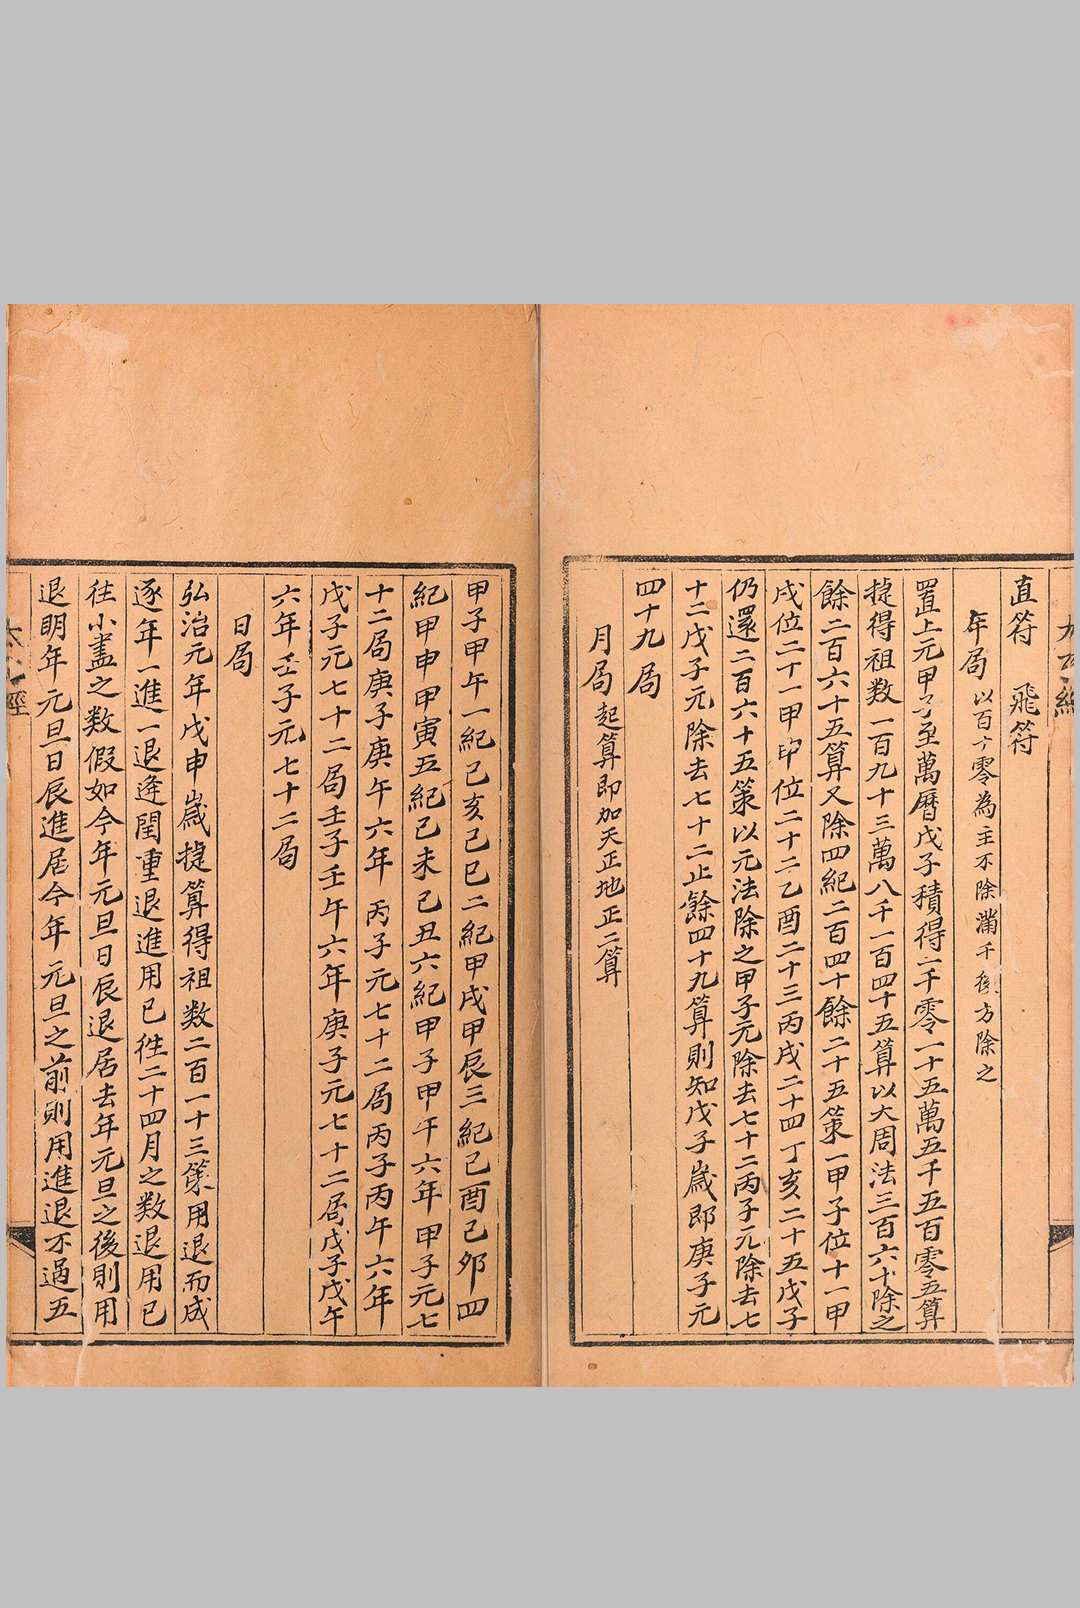 直符　飛符
年局　以百十零為主不除滿千後方除之
置上元甲子至萬曆戊子積得一千零一十五萬五千五百零五算
㨗得祖數一百九十三萬八千一百四十五算以大周法三百六十除之
餘二百六十五算又除四紀二百四十餘二十五策一甲子位十一甲
戌位二十一甲申位二十二乙酉二十三丙戌二十四丁亥二十五戊子
仍還二百六十五策以元法除之甲子元除去七十二丙子元除去七
十二戊子元除去七十二止餘四十九算則知戊子歲即庚子元
四十九局
月局　起算即加天正地正二算
甲子甲午一紀己亥己巳二紀甲戌甲辰三紀己酉己夘四
紀甲申甲寅五紀己未己丑六紀甲子甲午六年甲子元七
十二局庚子庚午六年丙子元七十二局丙子丙午六年
戊子元七十二局壬子壬午六年庚子元七十二局戊子戊午
六年壬子元七十二局
日局
弘治元年戊申歲㨗算得祖数二百一十三策用退而成
逐年一進一退逄閏重退進用已徃二十四月之数退用已
徃小盡之数假如今年元旦日辰退居去年元旦之後則用
退明年元旦日辰進居今年元旦之前則用進退不過五